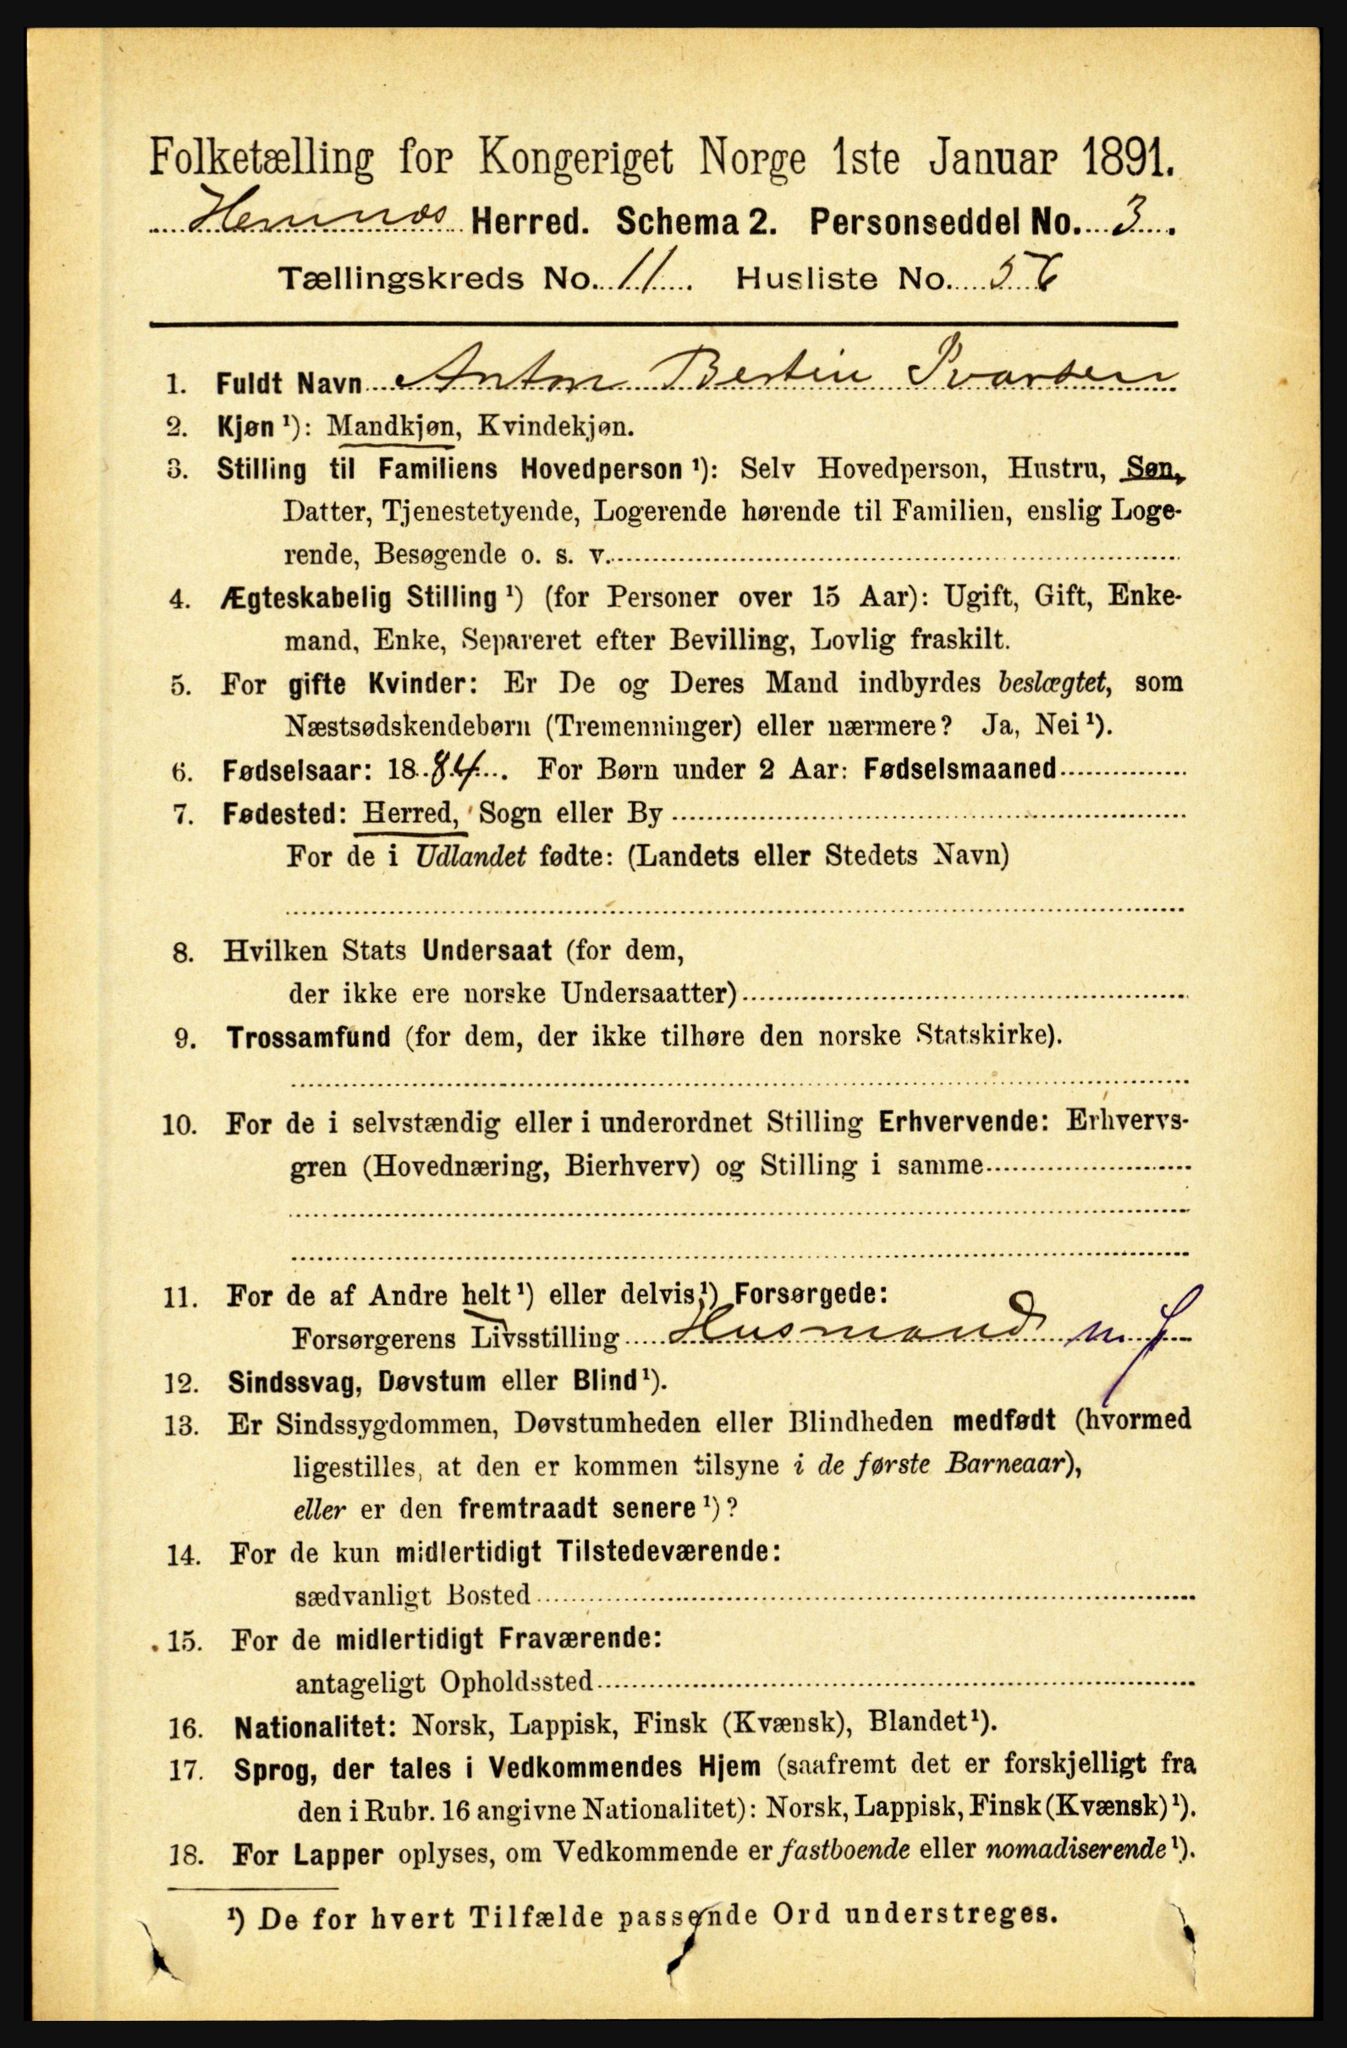 Folketælling for Kongeriget Norge 1ste Januar 1891.
Hemnæs Herred. Schema 2. Personseddel No. 3.
Tællingskreds No. 11. Husliste No. 56
1. Fuldt Navn Anton Bertin Ivarsen
2. Kjøn ¹): Mandkjøn, Kvindekjøn.
3. Stilling til Familiens Hovedperson ¹): Selv Hovedperson, Hustru, Søn,
Datter, Tjenestetyende, Logerende hørende til Familien, enslig Loge-
rende, Besøgende o. s. v.
4. Ægteskabelig Stilling ¹) (for Personer over 15 Aar): Ugift, Gift, Enke-
mand, Enke, Separeret efter Bevilling, Lovlig fraskilt.
5. For gifte Kvinder: Er De og Deres Mand indbyrdes beslægtet, som
Næstsødskendebørn (Tremenninger) eller nærmere? Ja, Nei ¹).
6. Fødselsaar: 1884. For Børn under 2 Aar: Fødselsmaaned
7. Fødested: Herred, Sogn eller By
For de i Udlandet fødte: (Landets eller Stedets Navn)
8. Hvilken Stats Undersaat (for dem,
der ikke ere norske Undersaatter)
9. Trossamfund (for dem, der ikke tilhøre den norske Statskirke).
10. For de i selvstændig eller i underordnet Stilling Erhvervende: Erhvervs-
gren (Hovednæring, Bierhverv) og Stilling i samme
11. For de af Andre helt ¹) eller delvis ¹) Forsørgede:
Forsørgerens Livsstilling Husmand m. J
12. Sindssvag, Døvstum eller Blind ¹).
13. Er Sindssygdommen, Døvstumheden eller Blindheden medfødt (hvormed
ligestilles, at den er kommen tilsyne i de første Barneaar),
eller er den fremtraadt senere ¹)?
14. For de kun midlertidigt Tilstedeværende:
sædvanligt Bosted
15. For de midlertidigt Fraværende:
antageligt Opholdssted
16. Nationalitet: Norsk, Lappisk, Finsk (Kvænsk), Blandet ¹).
17. Sprog, der tales i Vedkommendes Hjem (saafremt det er forskjelligt fra
den i Rubr. 16 angivne Nationalitet): Norsk, Lappisk, Finsk (Kvænsk) ¹).
18. For Lapper oplyses, om Vedkommende er fastboende eller nomadiserende ¹).
¹) De for hvert Tilfælde passende Ord understreges.